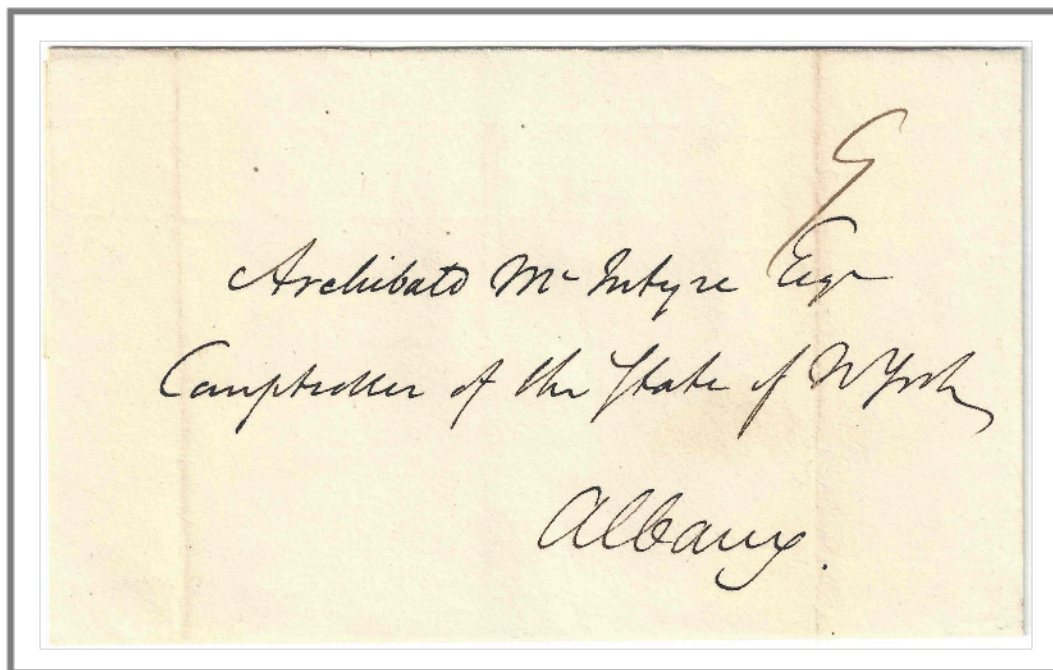 Archibald Mc Intyre Esqr
Comptroller of the State of N York
Albany.